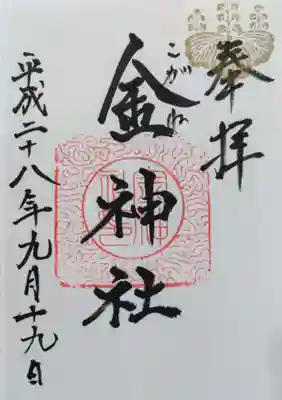 奉拝
こがね
金神社
平成二十八年九月十九日